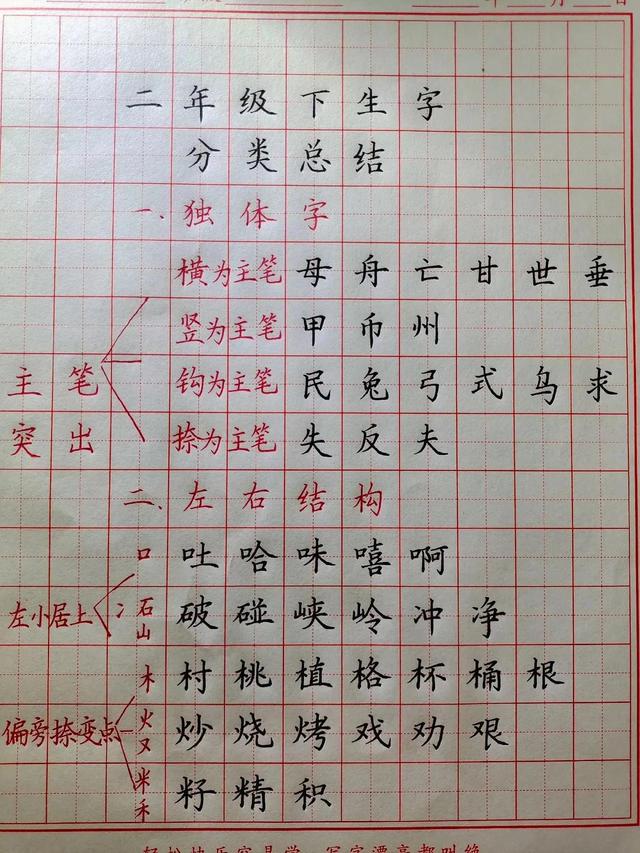 年 月 日
二年级下生字
分类总结
一、独体字
横为主笔 母舟亡甘世垂
竖为主笔 甲币州
主笔 钩为主笔 民兔弓式鸟求
突出 捺为主笔 失反夫
二、左右结构
口 吐哈味嘻啊
左小居上 冫石山 破碰峡岭冲净
木 村桃植格杯桶根
偏旁捺变点 火又 炒烧烤戏劝艰
米禾 籽精积